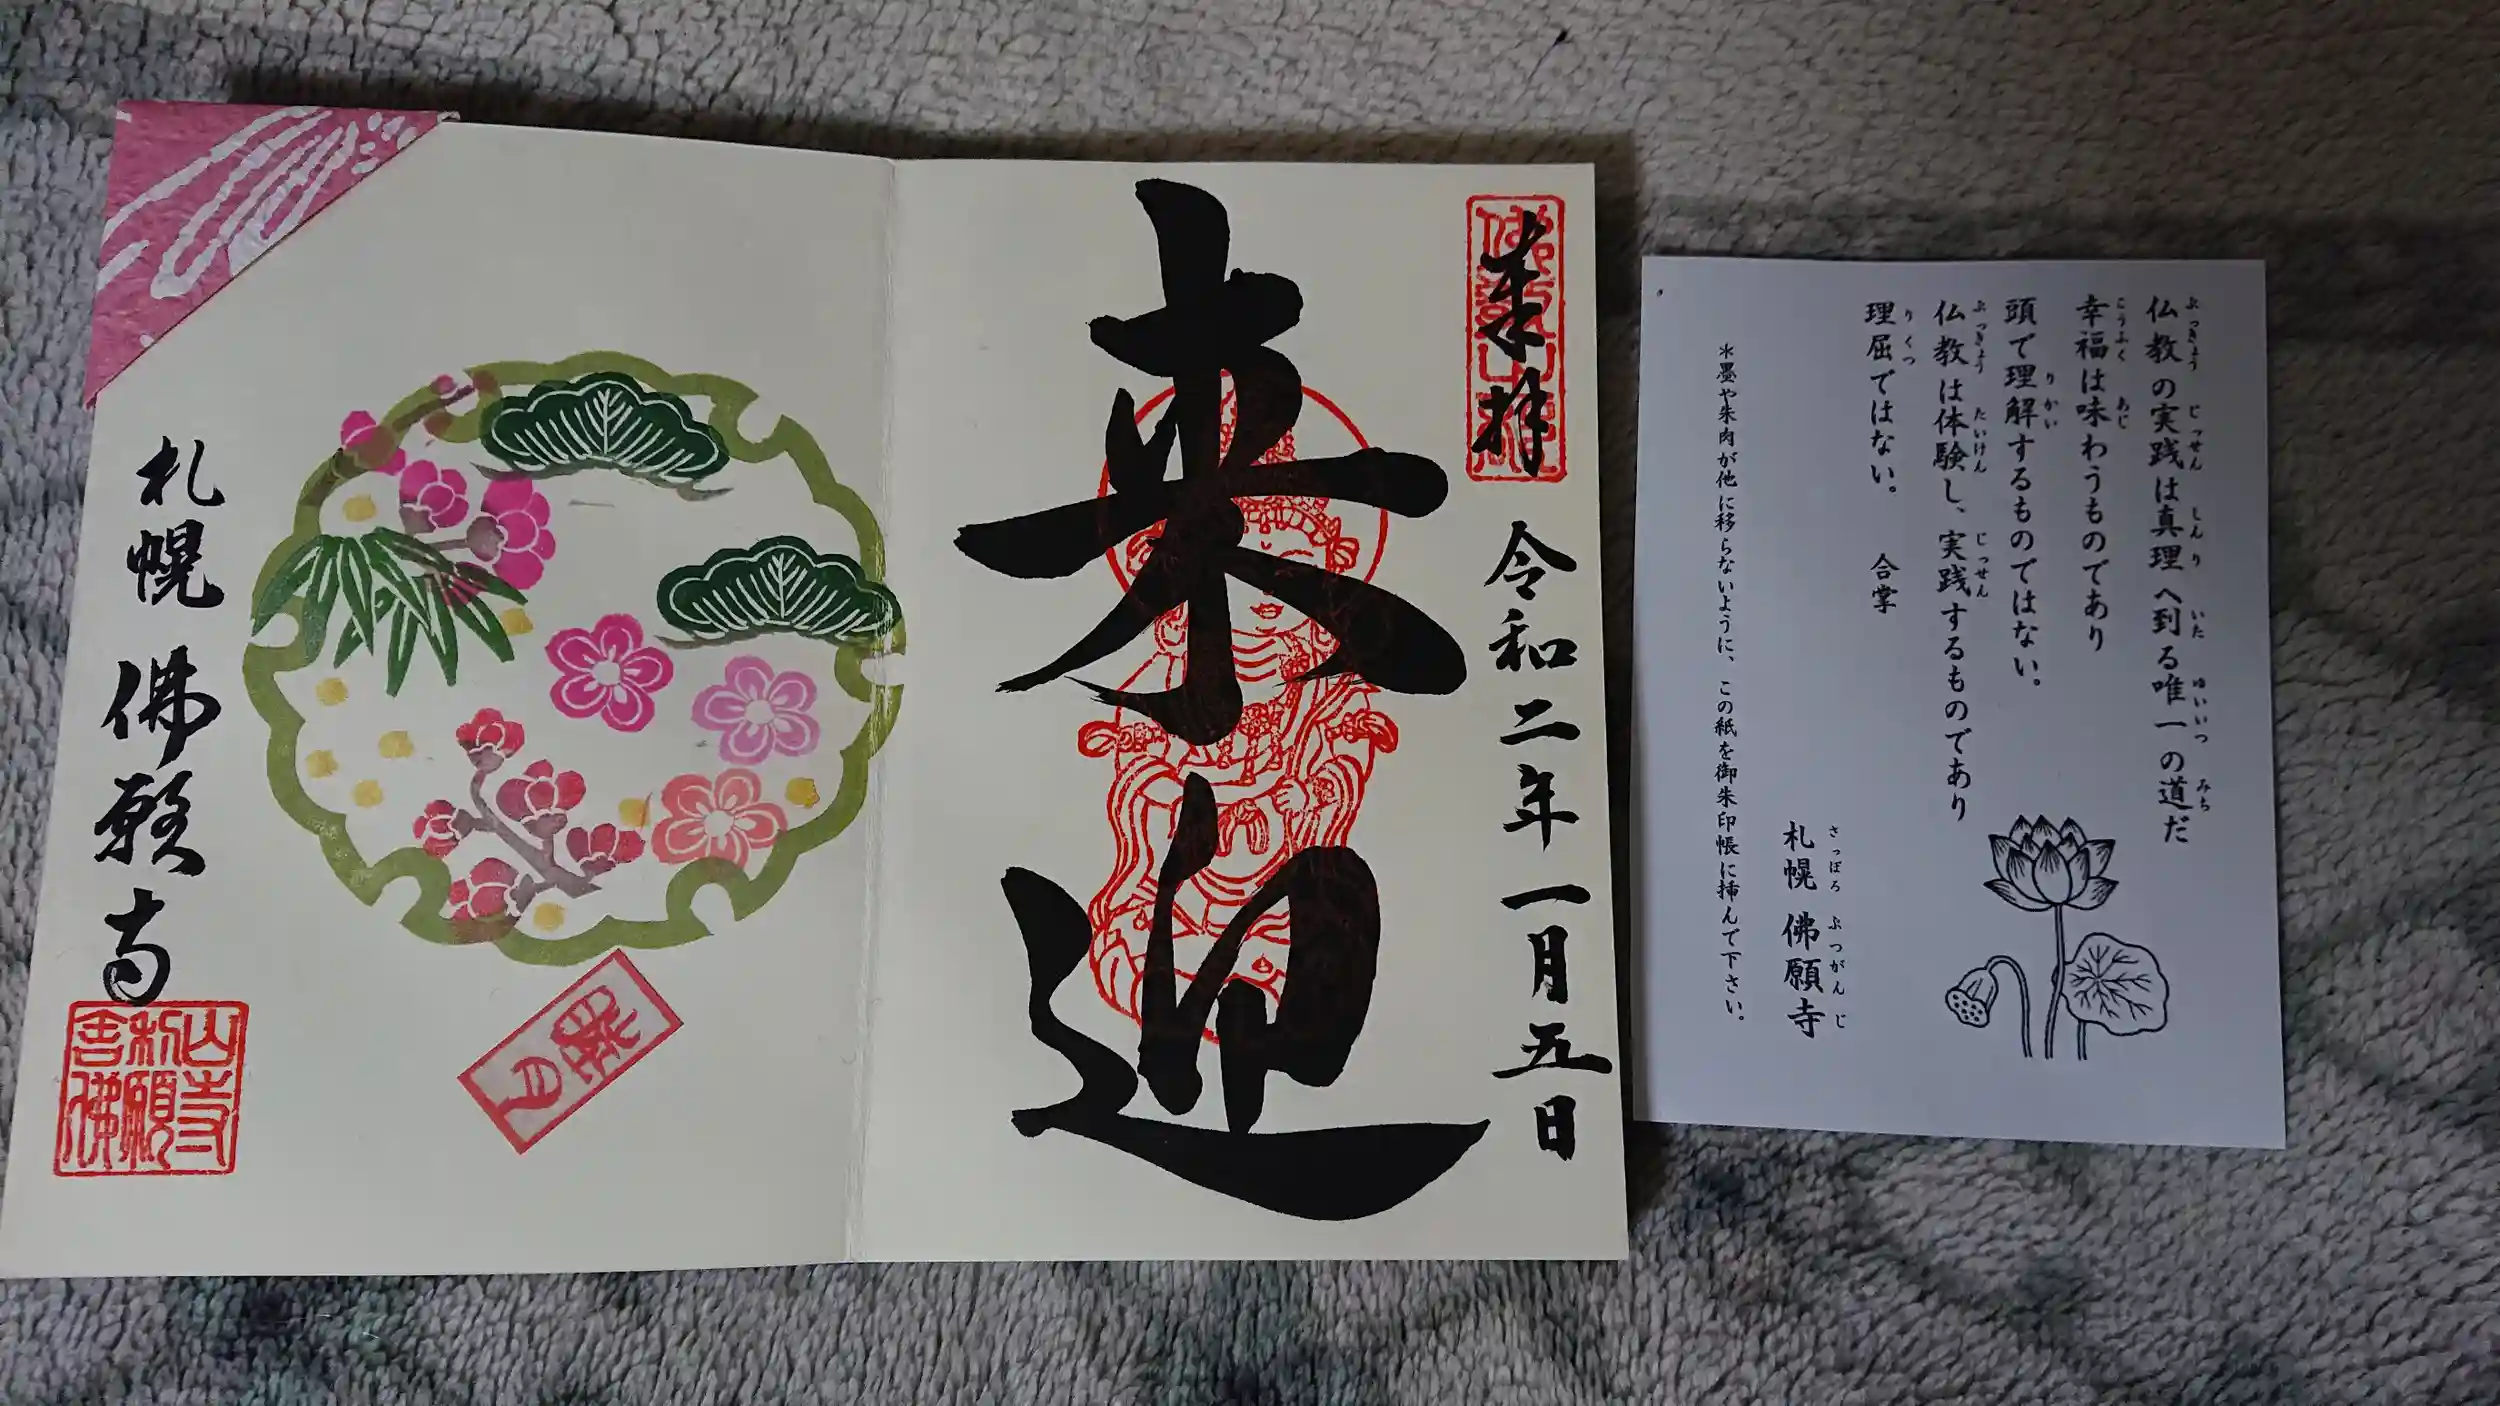 奉拝
令和二年一月五日
来迎
札幌 佛願寺
仏教の実践は真理へ到る唯一の道だ
幸福は味わうものであり
頭で理解するものではない。
仏教は体験し、実践するものであり
理屈ではない。 合掌
札幌 佛願寺
*墨や朱肉が他に移らないように、この紙を御朱印帳に挿んで下さい。